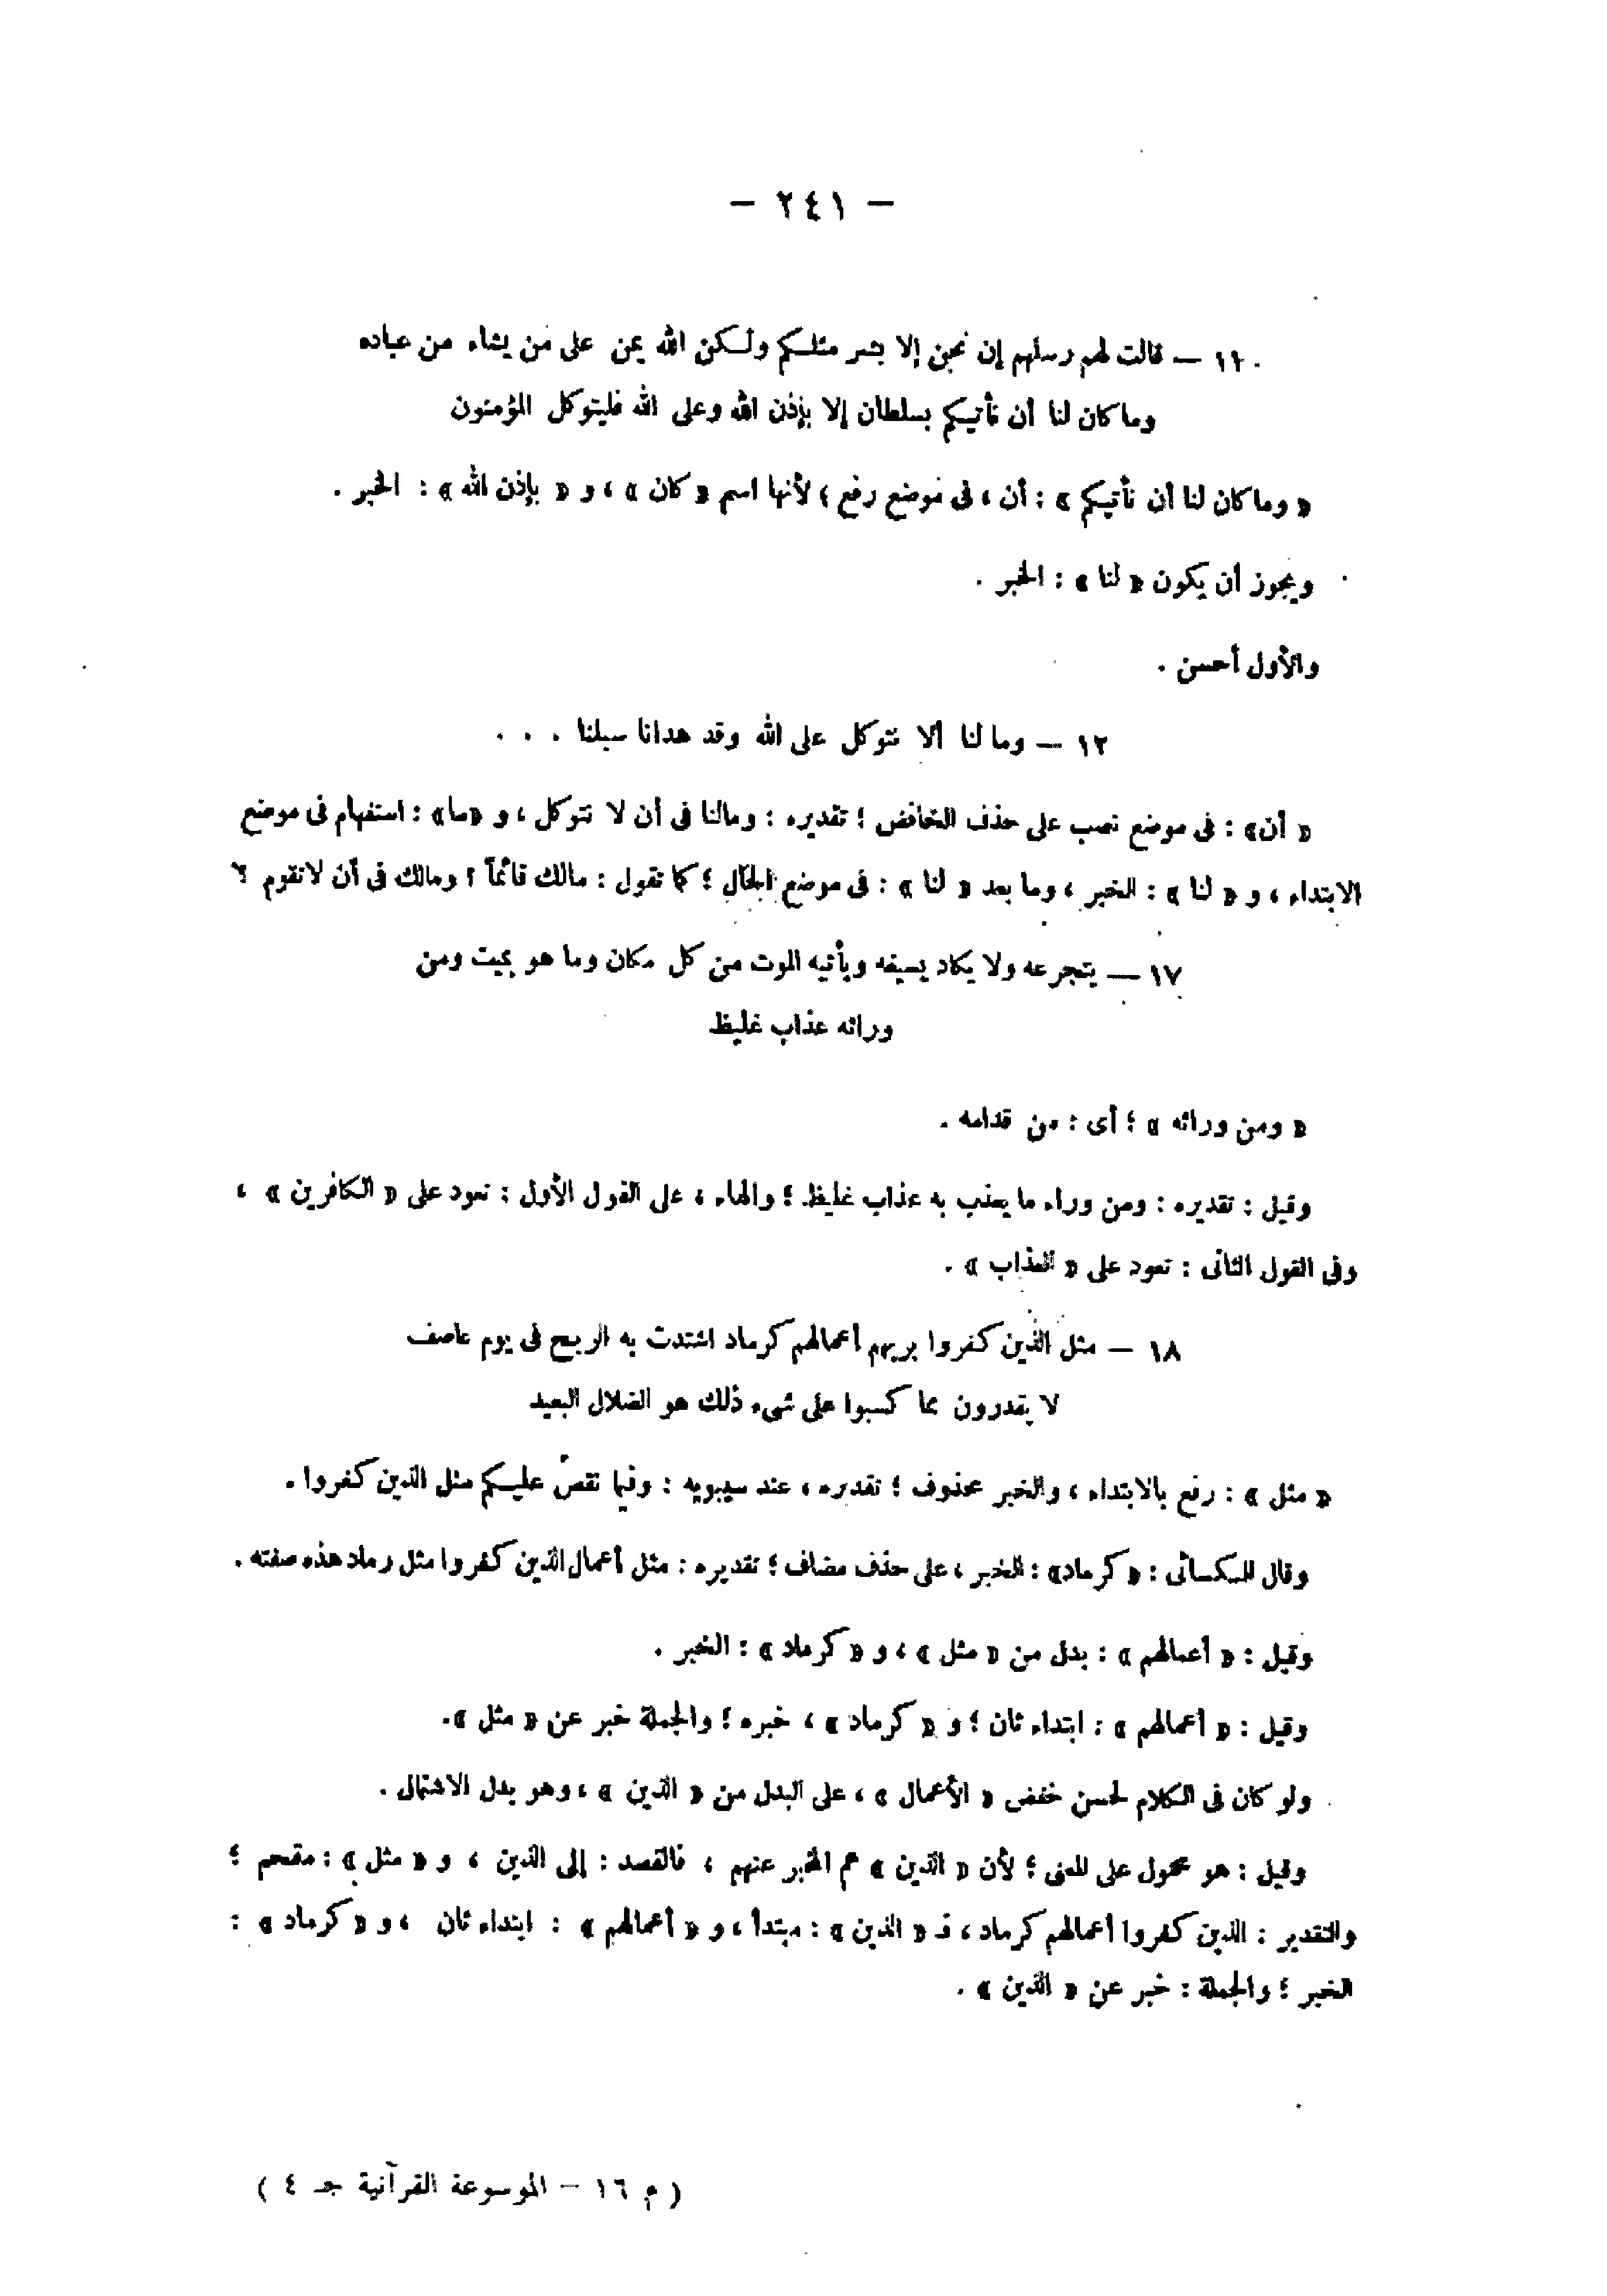 — ٢٤١ —
١١ — قالت لهم رسلهم إن نحن إلا بشر مثلكم ولكن الله يمن على من يشاء من عباده
وما كان لنا أن نأتيكم بسلطان إلا بإذن الله وعلى الله فليتوكل المؤمنون
« وما كان لنا أن نأتيكم » : أن ، فى موضع رفع ؛ لأنها اسم « كان » ، و « بإذن الله » : الخبر .
ويجوز أن يكون « لنا » : الخبر .
والأول أحسن .
١٢ — وما لنا ألا نتوكل على الله وقد هدانا سبلنا . . .
« أن » : فى موضع نصب على حذف الخافض ؛ تقديره : ومالنا فى أن لا نتوكل ، و «ما» : استفهام فى موضع
الابتداء ، و « لنا » : الخبر ، وما بعد « لنا » : فى موضع الحال ؛ كما تقول : مالك قائماً ؟ ومالك فى أن لا تقوم ؟
١٧ — يتجرعه ولا يكاد يسيغه ويأتيه الموت من كل مكان وما هو بميت ومن
ورائه عذاب غليظ
« ومن ورائه » ؛ أى : من قدامه .
وقيل : تقديره : ومن وراء ما يعذب به عذاب غليظ ؛ والهاء ، على القول الأول : تعود على « الكافرين » ،
وفى القول الثانى : تعود على « العذاب » .
١٨ — مثل الذين كفروا بربهم أعمالهم كرماد اشتدت به الريح فى يوم عاصف
لا يقدرون مما كسبوا على شىء ذلك هو الضلال البعيد
« مثل » : رفع بالابتداء ، والخبر محذوف ؛ تقديره ، عند سيبويه : وفيما نقصّ عليكم مثل الذين كفروا .
وقال الكسائى : « كرماد» : الخبر ، على حذف مضاف ؛ تقديره : مثل أعمال الذين كفروا مثل رماد هذه صفته .
وقيل : « أعمالهم » : بدل من « مثل » ، و « كرماد » : الخبر .
وقيل : « أعمالهم » : ابتداء ثان ؛ و « كرماد » ، خبره ؛ والجملة خبر عن « مثل ».
ولو كان فى الكلام لحسن خفض « الأعمال » ، على البدل من « الذين » ، وهو بدل الاشتمال .
وقيل : هو محمول على المعنى ؛ لأن « الذين » هم المخبر عنهم ، فالقصد : إلى الذين ، و « مثل » : مقحم ؛
والتقدير : الذين كفروا أعمالهم كرماد ، فـ « الذين » : مبتدأ ، و « أعمالهم » : ابتداء ثان ، و « كرماد » :
الخبر ؛ والجملة : خبر عن « الذين » .
( م ١٦ — الموسوعة القرآنية جـ ٤ )